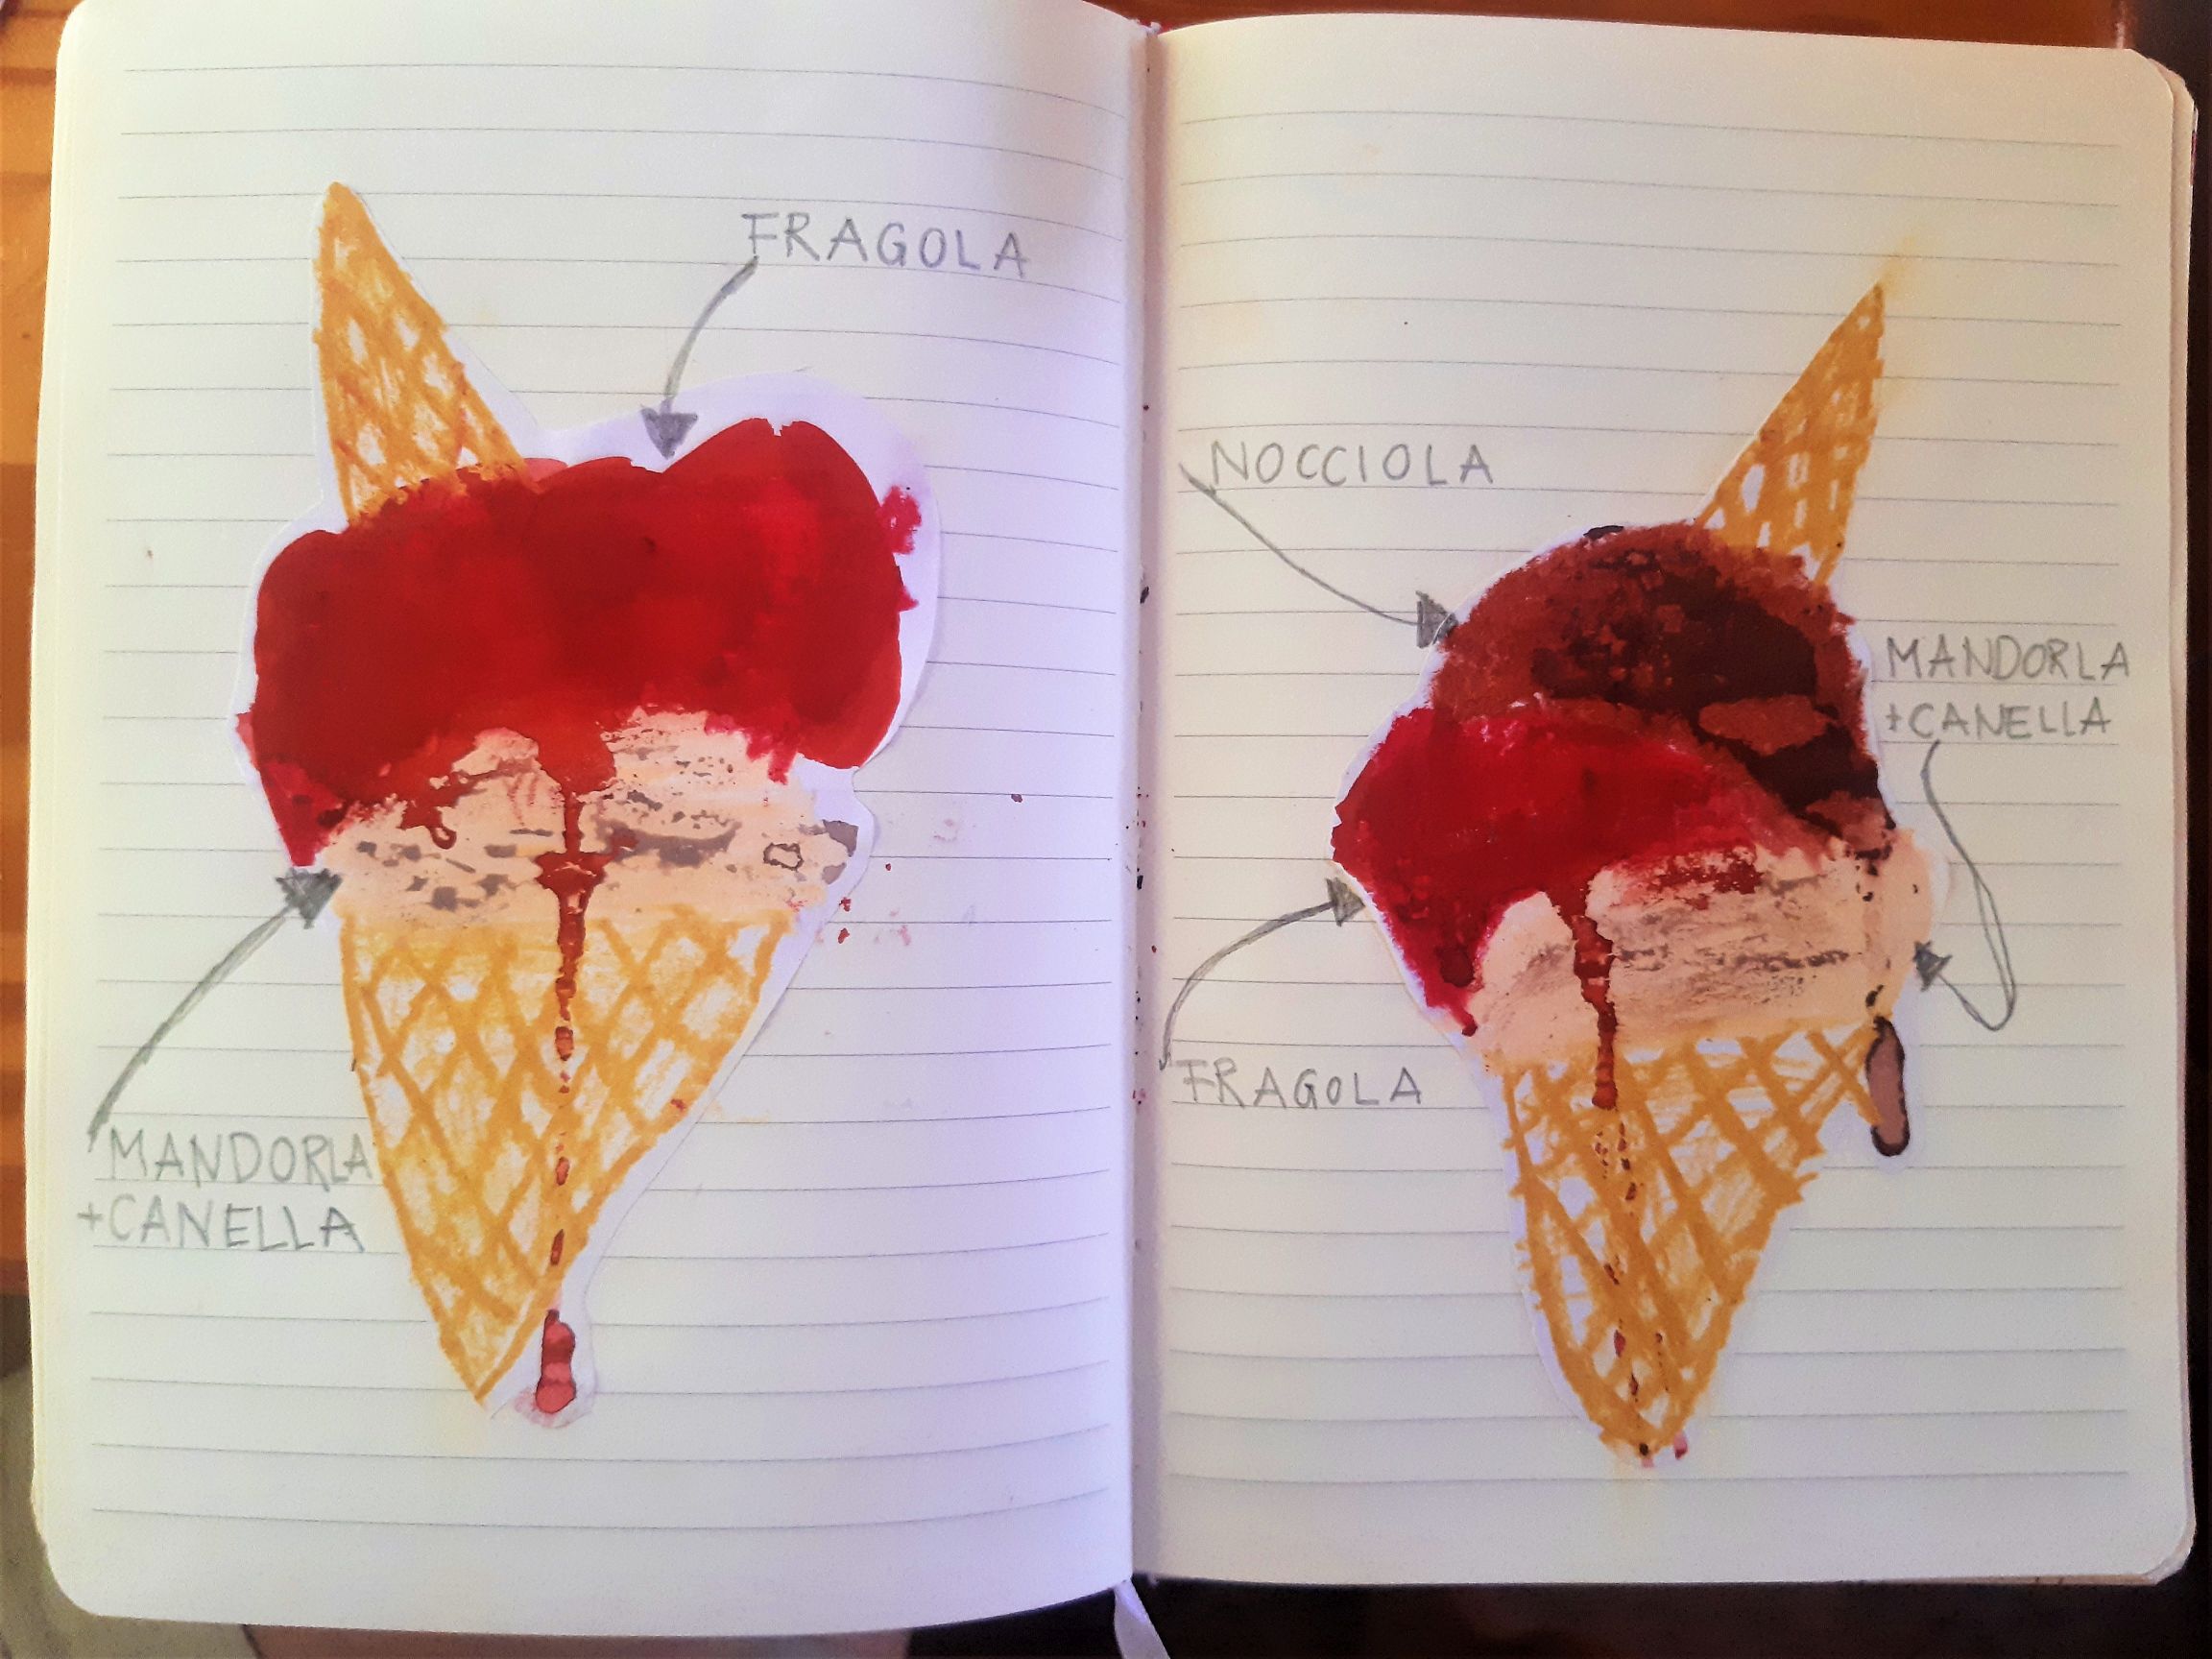 FRAGOLA
MANDORLA
+CANELLA
NOCCIOLA
MANDORLA
+CANELLA
FRAGOLA